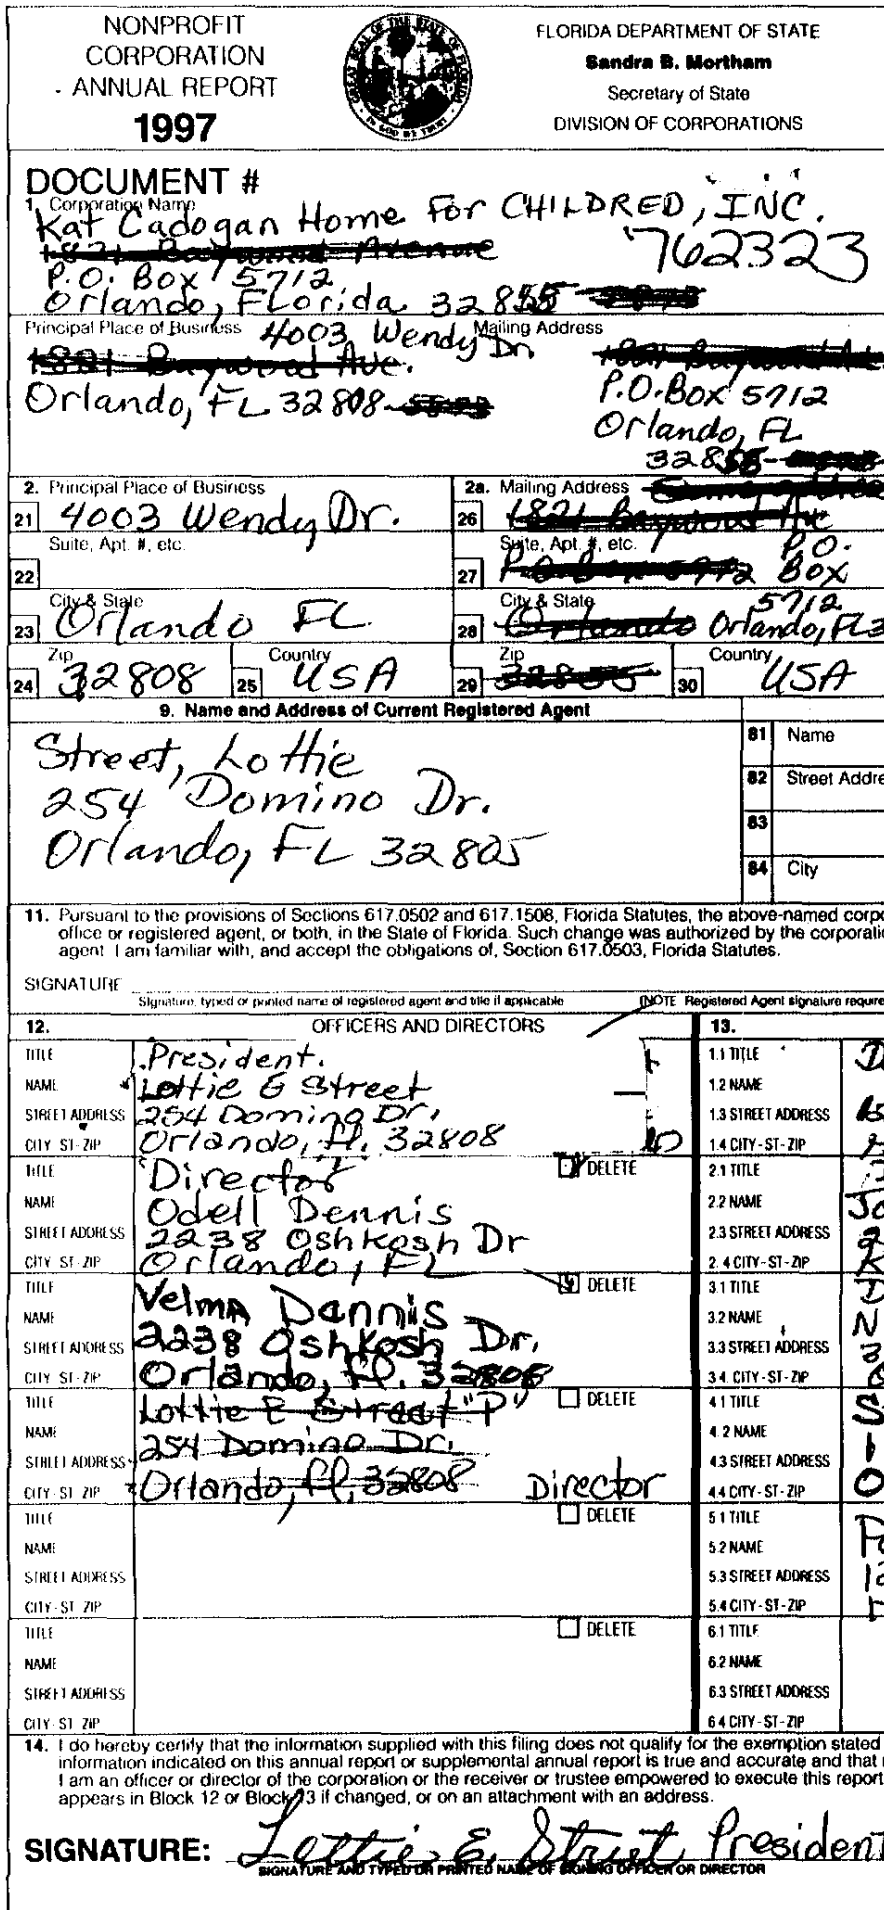 NONPROFIT
CORPORATION
ANNUAL REPORT
1997
GREAT SEAL OF THE STATE OF FLORIDA
IN GOD WE TRUST
FLORIDA DEPARTMENT OF STATE
Sandra B. Mortham
Secretary of State
DIVISION OF CORPORATIONS
DOCUMENT #
1. Corporation Name
Kat Cadogan Home For CHILDRED, INC.
1821 Baywood Avenue
762323
P.O. Box 5712
Orlando, Florida 32855
Principal Place of Business
4003 Wendy Dr
1821 Baywood Ave.
Orlando, FL 32808
Mailing Address
1821 Baywood
P.O. Box 5712
Orlando, FL
32855
2. Principal Place of Business
21 4003 Wendy Dr.
Suite, Apt. #, etc.
22
City & State
23 Orlando FL
Zip
24 32808
Country
25 USA
2a. Mailing Address
26 1821 Baywood Ave
Suite, Apt. #, etc.
27 P.O Box 5712 P.O. Box
5712
City & State
28 Orlando Orlando, FL 3
Zip
29 32855
Country
30 USA
9. Name and Address of Current Registered Agent
Street, Lottie
254 Domino Dr.
Orlando, FL 32805
81 Name
82 Street Addre
83
84 City
11. Pursuant to the provisions of Sections 617.0502 and 617.1508, Florida Statutes, the above-named corpo
office or registered agent, or both, in the State of Florida. Such change was authorized by the corporati
agent. I am familiar with, and accept the obligations of, Section 617.0503, Florida Statutes.
SIGNATURE
Signature, typed or printed name of registered agent and title if applicable
(NOTE Registered Agent signature require
12. OFFICERS AND DIRECTORS
TITLE President.
NAME Lottie E Street
STREET ADDRESS 254 Domino Dr.
CITY ST-ZIP Orlando, Fl. 32808
TITLE Director
DELETE
NAME Odell Dennis
STREET ADDRESS 2238 Oshkosh Dr
CITY ST-ZIP Orlando, FL
TITLE
DELETE
NAME Velma Dennis
STREET ADDRESS 2238 Oshkosh Dr.
CITY ST-ZIP Orlando, Fl. 32808
TITLE Lottie E Street "P"
DELETE
NAME
STREET ADDRESS 254 Domino Dr.
CITY ST-ZIP Orlando, Fl, 32808 Director
TITLE
DELETE
NAME
STREET ADDRESS
CITY-ST ZIP
TITLE
DELETE
NAME
STREET ADDRESS
CITY-ST ZIP
13.
1.1 TITLE
1.2 NAME
1.3 STREET ADDRESS
1.4 CITY-ST-ZIP
2.1 TITLE
2.2 NAME
2.3 STREET ADDRESS
2.4 CITY-ST-ZIP
3.1 TITLE
3.2 NAME
3.3 STREET ADDRESS
3.4 CITY-ST-ZIP
4.1 TITLE
4.2 NAME
4.3 STREET ADDRESS
4.4 CITY-ST-ZIP
5.1 TITLE
5.2 NAME
5.3 STREET ADDRESS
5.4 CITY-ST-ZIP
6.1 TITLE
6.2 NAME
6.3 STREET ADDRESS
6.4 CITY-ST-ZIP
14. I do hereby certify that the information supplied with this filing does not qualify for the exemption stated
information indicated on this annual report or supplemental annual report is true and accurate and that
I am an officer or director of the corporation or the receiver or trustee empowered to execute this report
appears in Block 12 or Block 13 if changed, or on an attachment with an address.
SIGNATURE: Lottie E. Street, President
SIGNATURE AND TYPED OR PRINTED NAME OF SIGNING OFFICER OR DIRECTOR